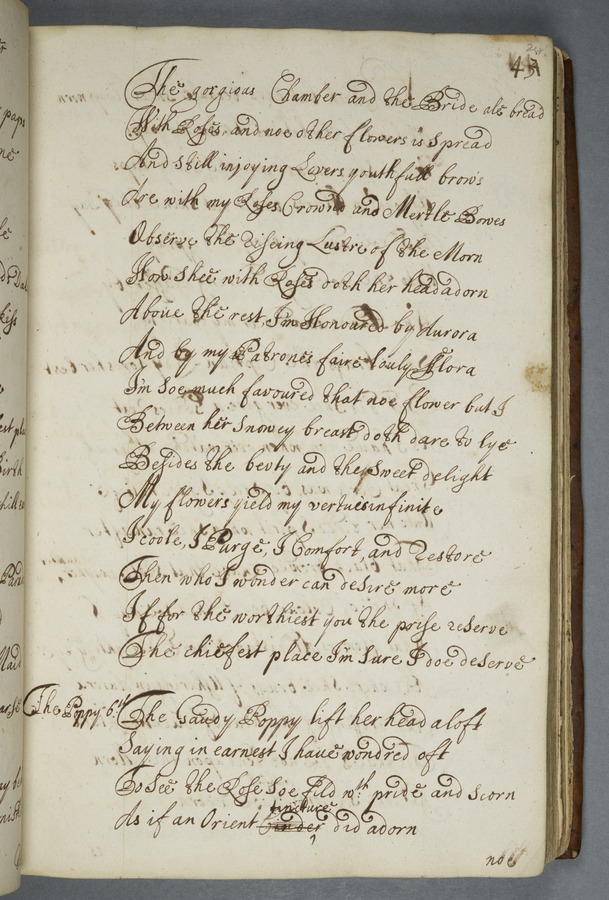 43
The gorgious Chamber and the Bride ale bread
With Roses, and noe other flowers is spread
And still injoying Lovers youthfull brows
Are with my Roses Crownd and Mertle Bowes
Observe the Riseing Lustre of the Morn
How shee with Roses doth her head adorn
Above the rest, I'm Honoured by Aurora
And by my Patrones faire louly Flora
I'm soe much favoured that noe flower but I
Between her snowey breast doth dare to lye
Besides the bevty and the sweet delight
My flowers yield my vertues infinite
I coole, I Purge, I Comfort, and Restore
Then who I wonder can desire more
If for the worthiest you the prise reserve
The chiefest place I'm sure I doe deserve
The Poppy 6th The Gaudy Poppy lift her head aloft
Saying in earnest I have wondred oft
To see the Rose soe fild wth pride and scorn
tincture
As if an Orient did adorn
noe